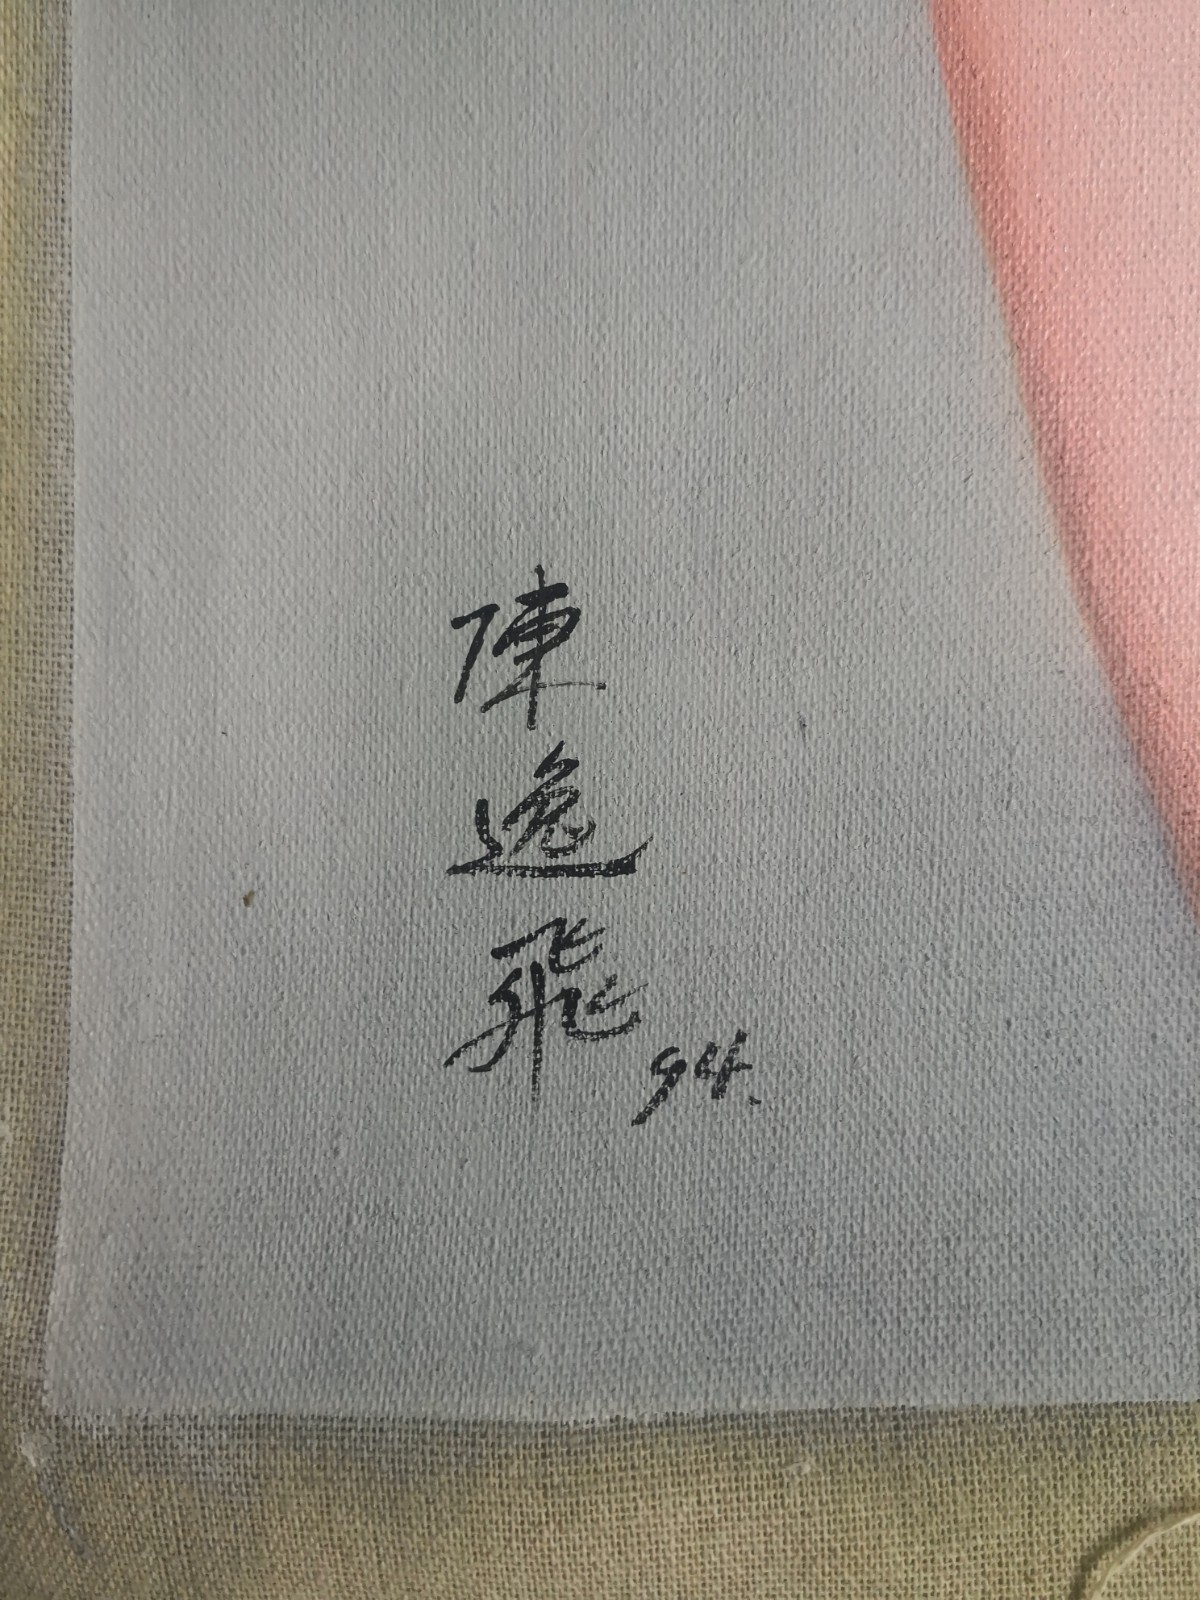 陳逸飛
94.